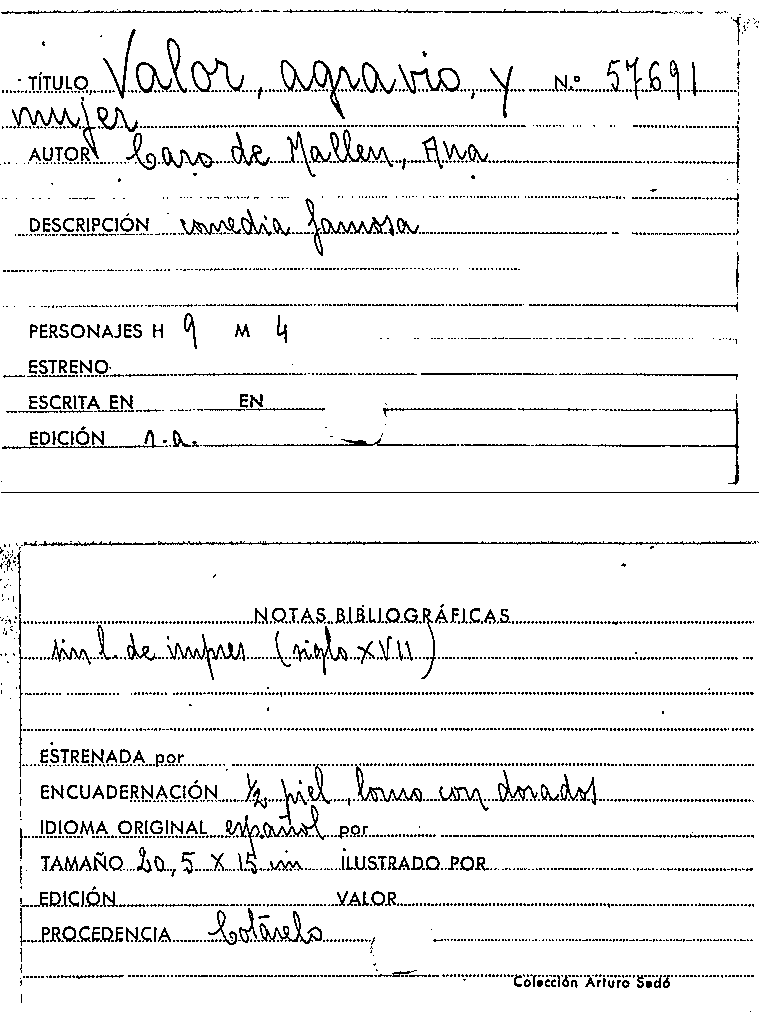 TÍTULO Valor, agravio, y N.º 57691
mujer
AUTOR Caro de Mallen, Ana
DESCRIPCIÓN comedia famosa
PERSONAJES H 9 M 4
ESTRENO
ESCRITA EN EN
EDICIÓN s.a.
NOTAS BIBLIOGRÁFICAS
sin l. de impres (siglo XVII)
ESTRENADA por
ENCUADERNACIÓN ½ piel, lomo con dorados
IDIOMA ORIGINAL español por
TAMAÑO 20,5 X 15 cm ILUSTRADO POR
EDICIÓN VALOR
PROCEDENCIA Cotarelo
Colección Arturo Sedó